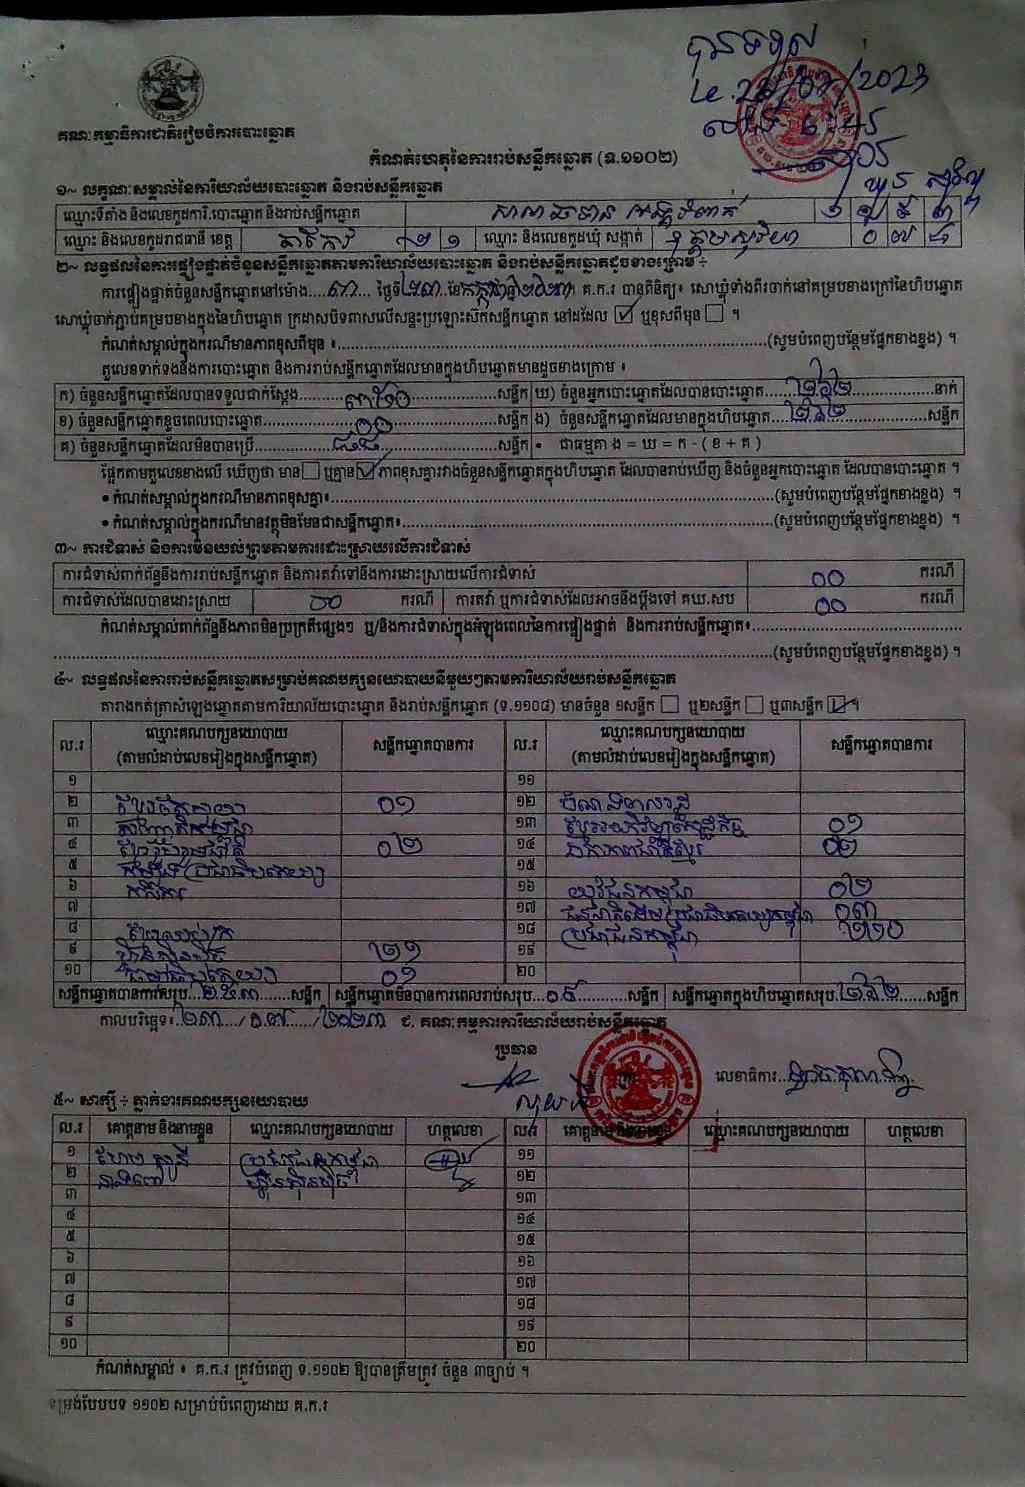 បានទទួល
Le. 23/07/2023
គណៈកម្មាធិការជាតិរៀបចំការបោះឆ្នោត
កំណត់ហេតុនៃការរាប់សន្លឹកឆ្នោត (ទ.១១០២)
១~ លក្ខណៈសម្គាល់នៃការិយាល័យបោះឆ្នោត និងរាប់សន្លឹកឆ្នោត
ឈ្មោះទីតាំង និងលេខកូដការិ.បោះឆ្នោត និងរាប់សន្លឹកឆ្នោត
ឈ្មោះ និងលេខកូដរាជធានី ខេត្ត តាកែវ ២ ១ ឈ្មោះ និងលេខកូដឃុំ សង្កាត់
២~ លទ្ធផលនៃការផ្ទៀងផ្ទាត់ចំនួនសន្លឹកឆ្នោតតាមការិយាល័យបោះឆ្នោត និងរាប់សន្លឹកឆ្នោតដូចខាងក្រោម ÷
ការផ្ទៀងផ្ទាត់ចំនួនសន្លឹកឆ្នោតនៅម៉ោង....៣.... ថ្ងៃទី២៣..ខែកក្កដាឆ្នាំ២០២៣ គ.ក.រ បានពិនិត្យ៖ សោឃ្លុំទាំងពីរចាក់នៅគម្របខាងក្រៅនៃហិបឆ្នោត
សោឃ្លុំចាក់ភ្ជាប់គម្របខាងក្នុងនៃហិបឆ្នោត ក្រដាសបិទពាសលើសន្ទះប្រឡោះស៊កសន្លឹកឆ្នោត នៅដដែល ☑ ឬខុសពីមុន ☐ ។
កំណត់សម្គាល់ក្នុងករណីមានភាពខុសពីមុន ៖....................(សូមបំពេញបន្ថែមផ្នែកខាងខ្នង) ។
តួលេខទាក់ទងនឹងការបោះឆ្នោត និងការរាប់សន្លឹកឆ្នោតដែលមានក្នុងហិបឆ្នោតមានដូចខាងក្រោម ៖
ក) ចំនួនសន្លឹកឆ្នោតដែលបានទទួលជាក់ស្តែង..........៣៥០..........សន្លឹក ឃ) ចំនួនអ្នកបោះឆ្នោតដែលបានបោះឆ្នោត......២៦២......នាក់
ខ) ចំនួនសន្លឹកឆ្នោតខូចពេលបោះឆ្នោត..........០០..........សន្លឹក ង) ចំនួនសន្លឹកឆ្នោតដែលមានក្នុងហិបឆ្នោត......២៦២......សន្លឹក
គ) ចំនួនសន្លឹកឆ្នោតដែលមិនបានប្រើ..........៨៨..........សន្លឹក • ជាធម្មតា ង = ឃ = ក - ( ខ + គ )
ផ្អែកតាមតួលេខខាងលើ ឃើញថា មាន ☐ ឬគ្មាន ☑ ភាពខុសគ្នារវាងចំនួនសន្លឹកឆ្នោតក្នុងហិបឆ្នោត ដែលបានរាប់ឃើញ និងចំនួនអ្នកបោះឆ្នោត ដែលបានបោះឆ្នោត ។
• កំណត់សម្គាល់ក្នុងករណីមានភាពខុសគ្នា៖....................(សូមបំពេញបន្ថែមផ្នែកខាងខ្នង) ។
• កំណត់សម្គាល់ក្នុងករណីមានវត្ថុមិនមែនជាសន្លឹកឆ្នោត៖....................(សូមបំពេញបន្ថែមផ្នែកខាងខ្នង) ។
៣~ ការជំទាស់ និងការមិនយល់ព្រមតាមការដោះស្រាយលើការជំទាស់
ការជំទាស់ពាក់ព័ន្ធនឹងការរាប់សន្លឹកឆ្នោត និងការតវ៉ាទៅនឹងការដោះស្រាយលើការជំទាស់ ០០ ករណី
ការជំទាស់ដែលបានដោះស្រាយ ០០ ករណី ការតវ៉ា ឬការជំទាស់ដែលអាចនឹងប្តឹងទៅ គឃ.សប ០០ ករណី
កំណត់សម្គាល់ពាក់ព័ន្ធនឹងភាពមិនប្រក្រតីផ្សេងៗ ឬ/និងការជំទាស់ក្នុងអំឡុងពេលនៃការផ្ទៀងផ្ទាត់ និងការរាប់សន្លឹកឆ្នោត៖....................
....................(សូមបំពេញបន្ថែមផ្នែកខាងខ្នង) ។
៤~ លទ្ធផលនៃការរាប់សន្លឹកឆ្នោតសម្រាប់គណបក្សនយោបាយនីមួយៗតាមការិយាល័យរាប់សន្លឹកឆ្នោត
តារាងកត់ត្រាសំឡេងឆ្នោតតាមការិយាល័យបោះឆ្នោត និងរាប់សន្លឹកឆ្នោត (ទ.១១០៨) មានចំនួន ១សន្លឹក ☐ ឬ២សន្លឹក ☐ ឬ៣សន្លឹក ☑ ។
ល.រ ឈ្មោះគណបក្សនយោបាយ (តាមលំដាប់លេខរៀងក្នុងសន្លឹកឆ្នោត) សន្លឹកឆ្នោតបានការ ល.រ ឈ្មោះគណបក្សនយោបាយ (តាមលំដាប់លេខរៀងក្នុងសន្លឹកឆ្នោត) សន្លឹកឆ្នោតបានការ
១ ១១
២ ០១ ១២
៣ ១៣ ០១
៤ ០២ ១៤ ឯកភាពជាតិខ្មែរ ០២
៥ ១៥
៦ ១៦ យុវជនកម្ពុជា ០២
៧ ១៧ ជនជាតិដើមប្រជាធិបតេយ្យកម្ពុជា ០៣
៨ ១៨ ប្រជាជនកម្ពុជា ២២០
៩ ហ៊្វុនស៊ិនប៉ិច ២១ ១៩
១០ ០១ ២០
សន្លឹកឆ្នោតបានការសរុប..២៥៣.......សន្លឹក សន្លឹកឆ្នោតមិនបានការពេលរាប់សរុប...០៩..........សន្លឹក សន្លឹកឆ្នោតក្នុងហិបឆ្នោតសរុប.២៦២......សន្លឹក
កាលបរិច្ឆេទ៖.២៣..../០៧....../២០២៣ ជ. គណៈកម្មការការិយាល័យរាប់សន្លឹកឆ្នោត
ប្រធាន
លេខាធិការ
៥~ សាក្សី ÷ ភ្នាក់ងារគណបក្សនយោបាយ
ល.រ គោត្តនាម និងនាមខ្លួន ឈ្មោះគណបក្សនយោបាយ ហត្ថលេខា ល.រ គោត្តនាម និងនាមខ្លួន ឈ្មោះគណបក្សនយោបាយ ហត្ថលេខា
១ ប្រជាជនកម្ពុជា ១១
២ ហ៊្វុនស៊ិនប៉ិច ១២
៣ ១៣
៤ ១៤
៥ ១៥
៦ ១៦
៧ ១៧
៨ ១៨
៩ ១៩
១០ ២០
កំណត់សម្គាល់ ៖ គ.ក.រ ត្រូវបំពេញ ទ.១១០២ ឱ្យបានត្រឹមត្រូវ ចំនួន ៣ច្បាប់ ។
ទម្រង់បែបបទ ១១០២ សម្រាប់បំពេញដោយ គ.ក.រ